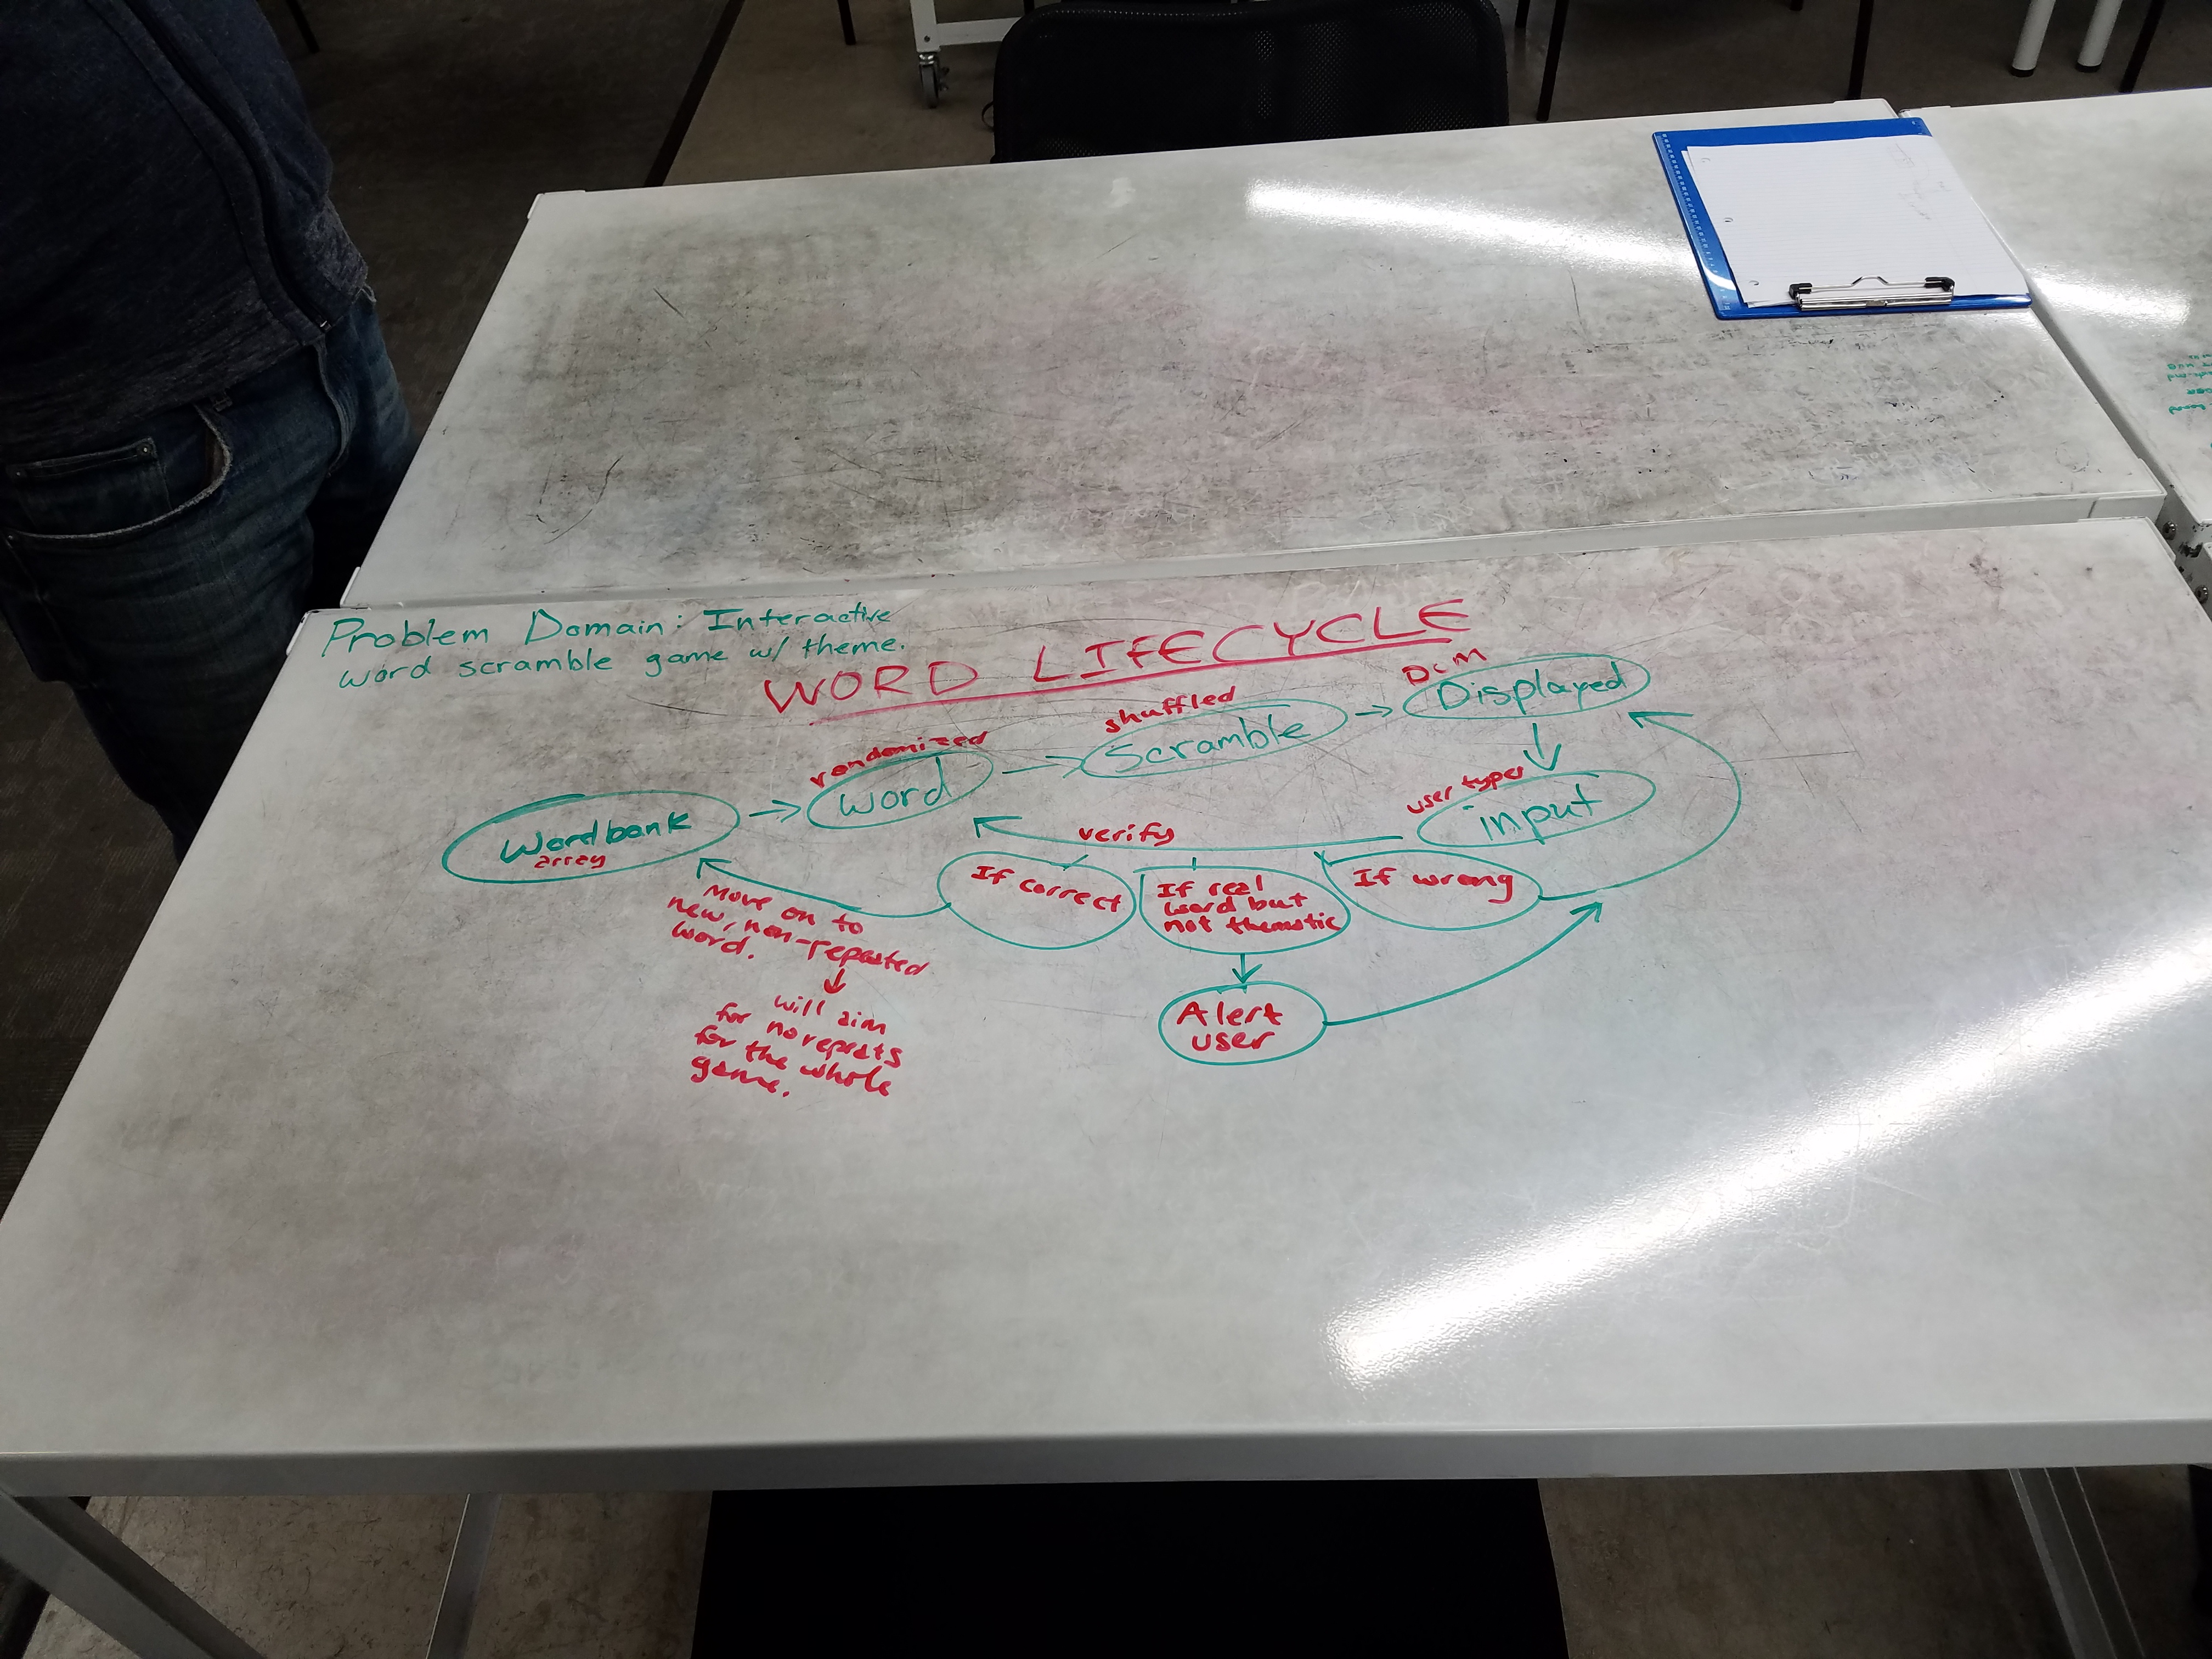 Problem Domain: Interactive
word scramble game w/ theme.
WORD LIFECYCLE
randomized
word
shuffled
Scramble
DOM
Displayed
Wordbank
array
user types
input
verify
If correct
If real
word but
not thematic
If wrong
Move on to
new, non-repeated
word.
will aim
for no repeats
for the whole
game.
Alert
user